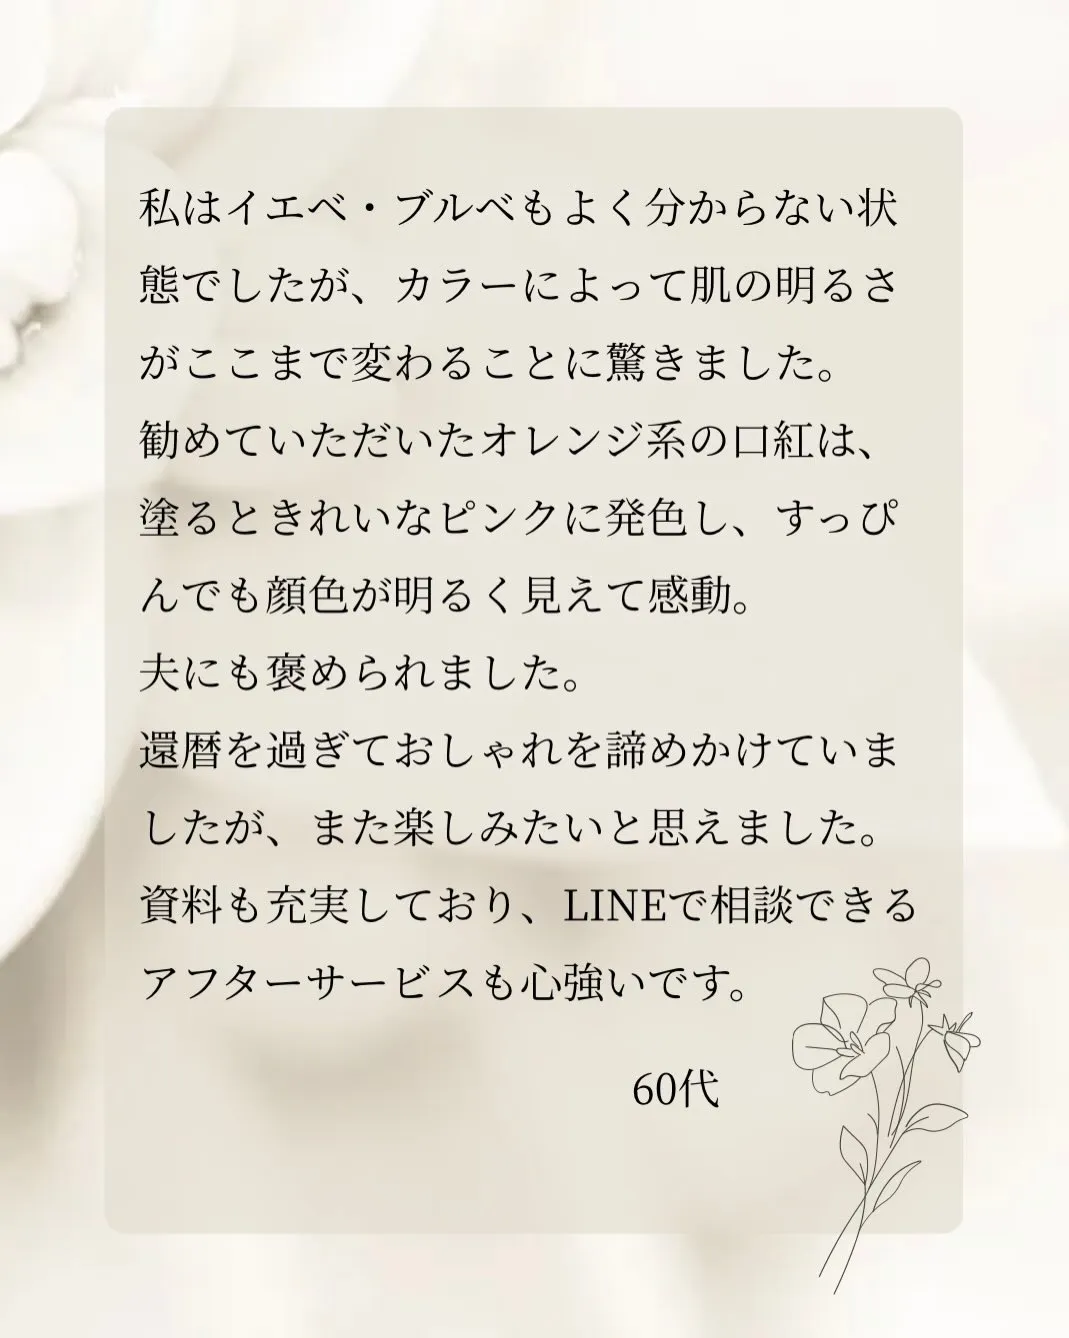 私はイエベ・ブルベもよく分からない状
態でしたが、カラーによって肌の明るさ
がここまで変わることに驚きました。
勧めていただいたオレンジ系の口紅は、
塗るときれいなピンクに発色し、すっぴ
んでも顔色が明るく見えて感動。
夫にも褒められました。
還暦を過ぎておしゃれを諦めかけていま
したが、また楽しみたいと思えました。
資料も充実しており、LINEで相談できる
アフターサービスも心強いです。
60代